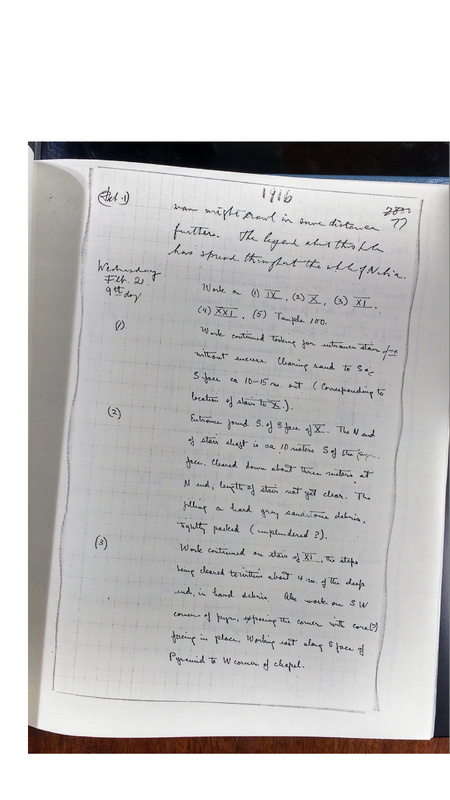 1916
(Feb. 1)
2800
77
man might crawl in some distance
further. The legend about this hole
has spread throughout the whole of Nubia.
Wednesday
Feb. 2
9th day
Work on (1) IX, (2) X, (3) XI,
(4) XXI, (5) Temple 100.
(1)
Work continued looking for entrance stair of IX
without success. Clearing sand to S of
S face ca 10-15 m. out (corresponding to
location of stair to X.).
(2)
Entrance found S. of S face of X. The N end
of stair shaft is ca 10 meters S of the pyr.
face. Cleared down about three meters at
N end, length of stair not yet clear. The
filling is hard grey sandstone debris,
tightly packed (unplundered?).
(3)
Work continued on stair of XI, the steps
being cleared to within about 4 m. of the deep
end, in hard debris. Also work on SW
corner of pyr., exposing the corner with core(?)
facing in place. Working east along S face of
Pyramid to W corner of chapel.